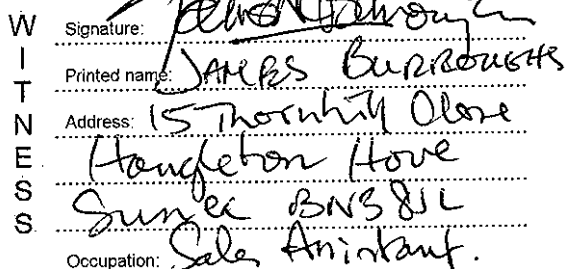 WITNESS
Signature:
Printed name: JAMES BURROUGHS
Address: 15 Thornhill Close
Hangleton Hove
Sussex BN3 8JL
Occupation: Sales Assistant.